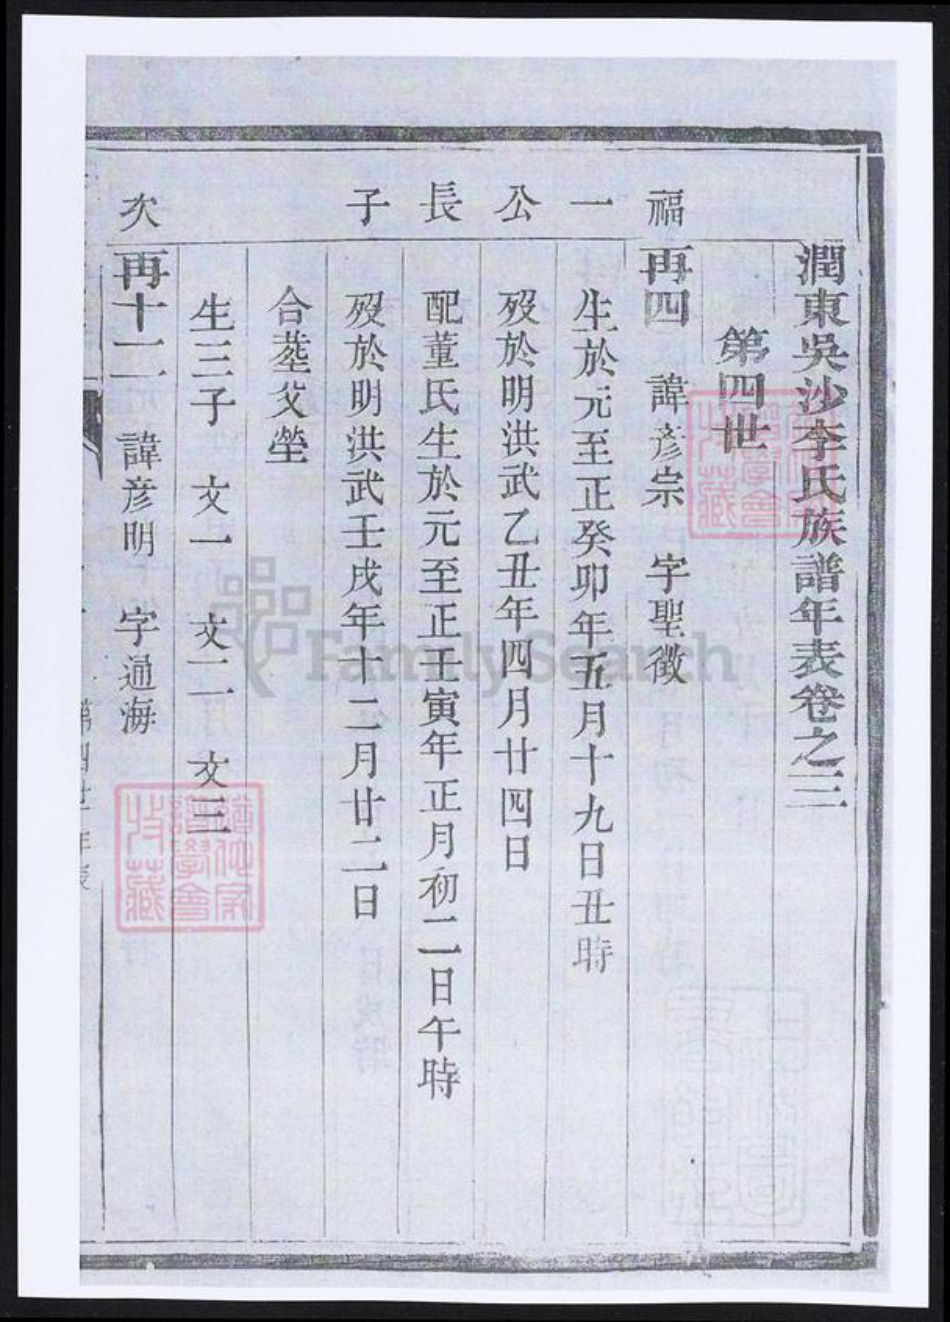 潤東吳沙李氏族譜年表卷之三
第四世
福一公長子
再四 諱彥宗 字聖徵
生於元至正癸卯年五月十九日丑時
歿於明洪武乙丑年四月廿四日
配董氏生於元至正壬寅年正月初二日午時
歿於明洪武壬戌年十二月廿二日
合塟父塋
生三子 文一 文二 文三
次
再十二 諱彥明 字通海
第四世年表
FamilySearch